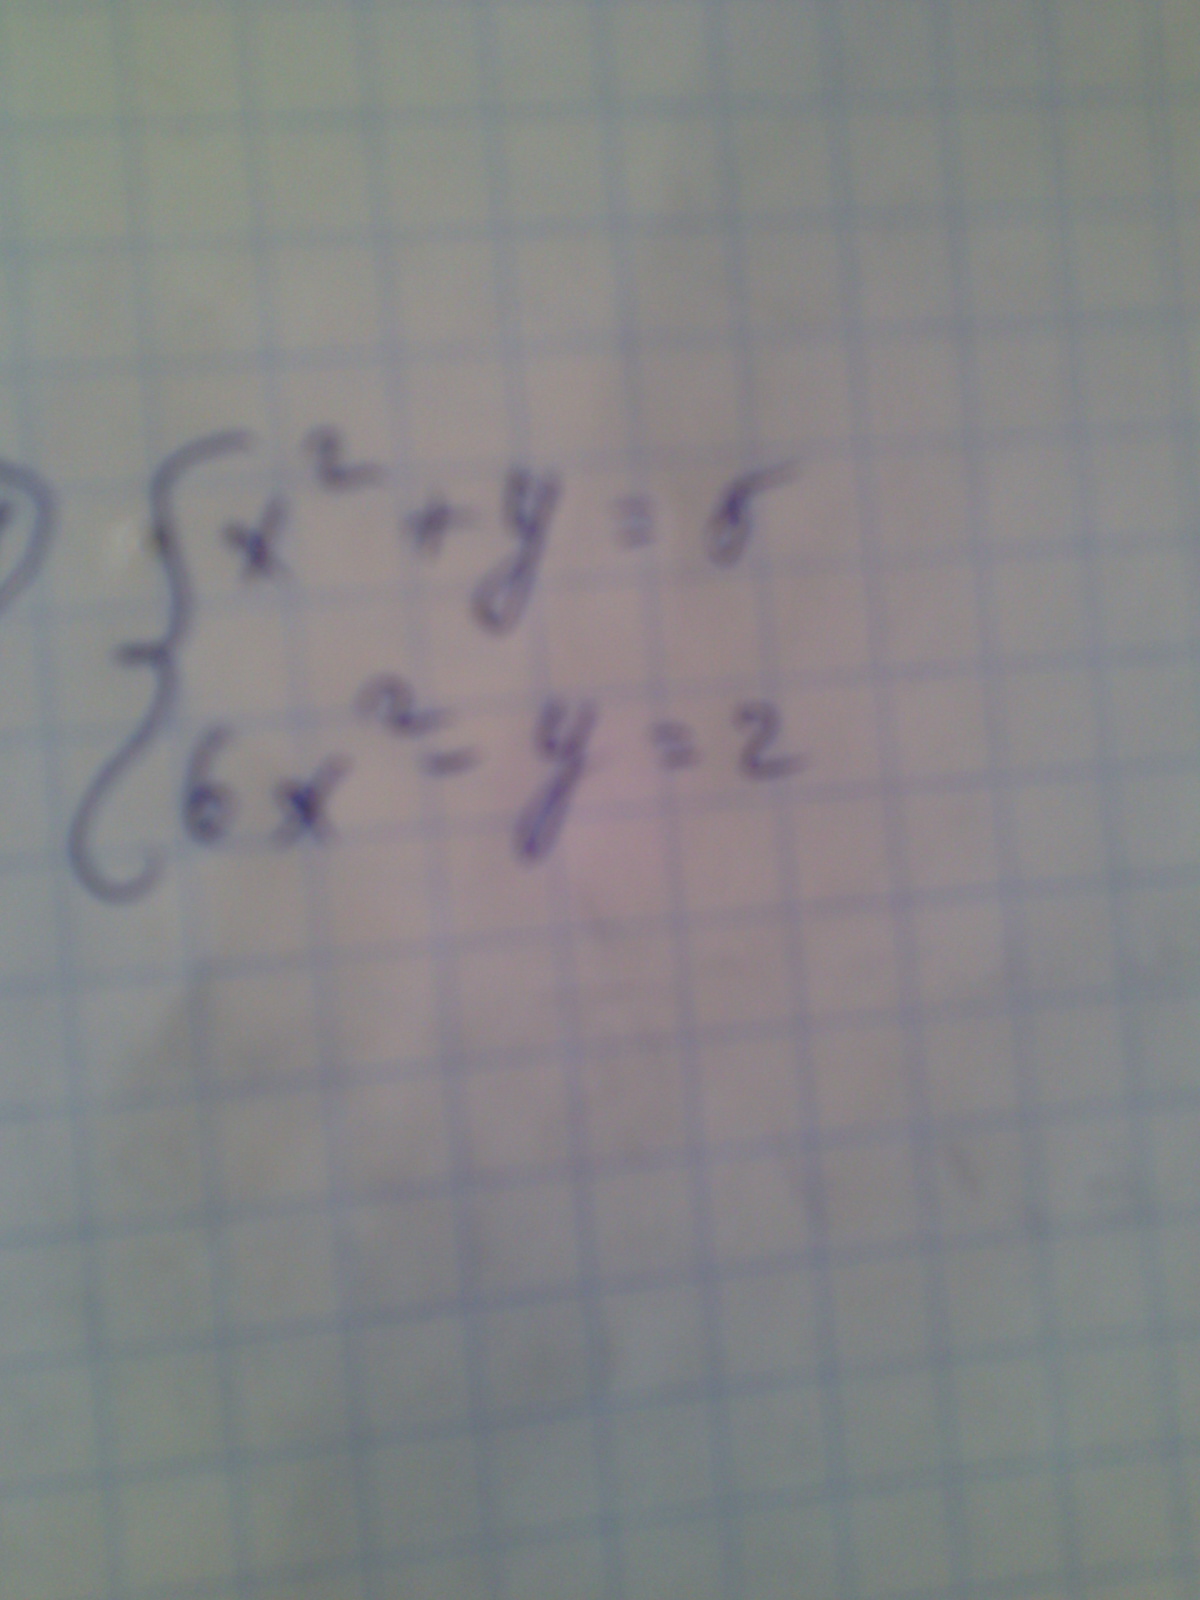 x² + y = 5
6x² - y = 2